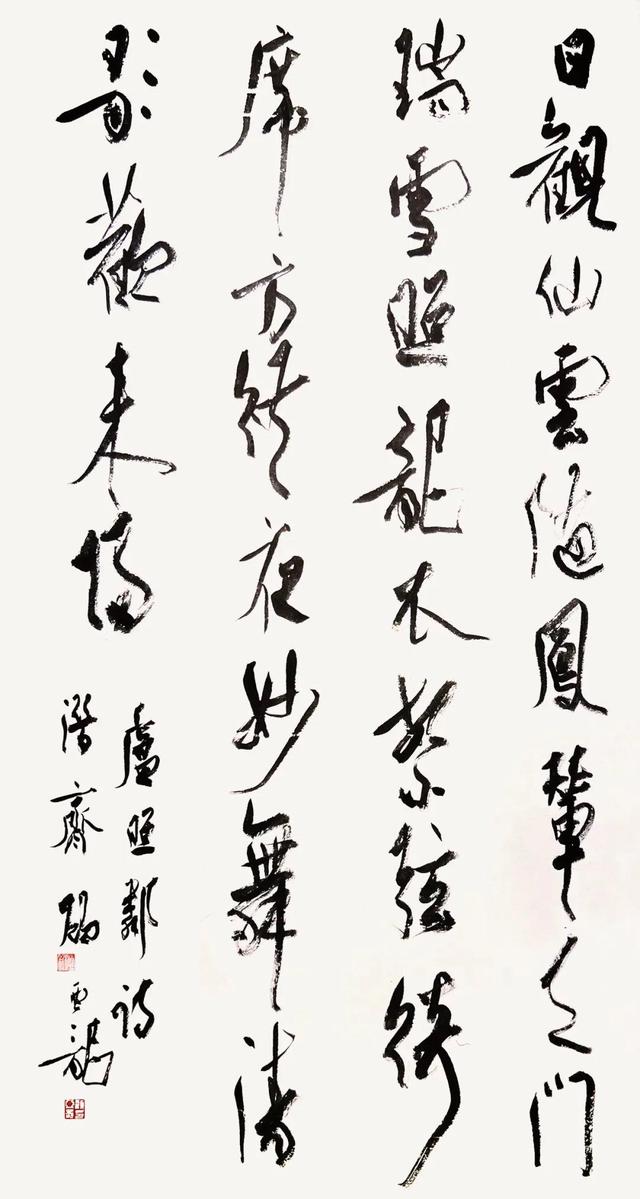 日觀仙雲隨鳳輦天門
瑞雪照龍衣繁絃綺
席方終夜妙舞清
歌歡未歸
盧照鄰詩
潛齋雲龍